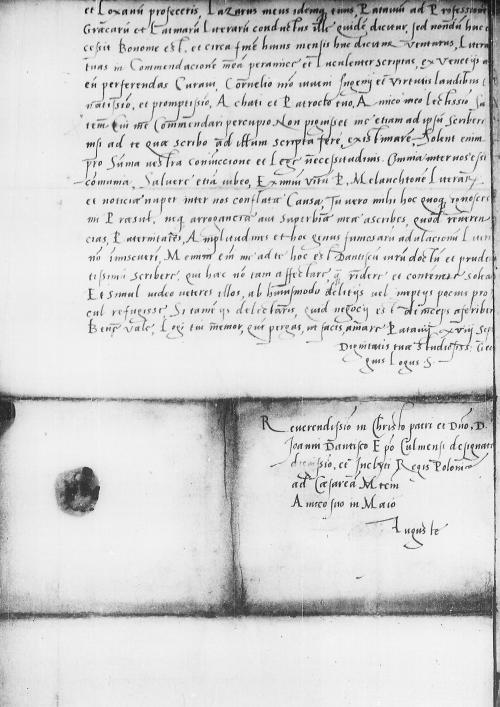 et Loxanū proseceris, Lazarus meus idemq̃ tuus Patauiū ad Professionē
Græcarū et Latinarū Literarū conductus ille quidē dicitur, sed nondū huc
cessit Bonome est, et circa finē huius mensis huc dicitur venturus, Litera
tuas in Commendacionē meā peramice et luculenter scriptas, ex Veneciis a
eū perferendas Curaui, Cornelio nr̃o iuueni Ingenij et Virtutis laudibus
natissi͂o, et promptissi͂o, Achati et Patroclo tuo, Amico meo lectissi͂o
tem Cui me Commendari percupio Non piguisset me etiam ad ipsū scribere
nisi ad te quæ scribo ad illum scripta fere existimarē, Solent enim
pro Sūma vestra coniunccione et Lege necessitudinis Omnia inter vos esse
cōmunia, Saluere etiā iubeo, Eximiū virū P. Melanchtonē Literarū
et noticiæ nuper inter nos conflatæ Causa, Tu vero mihi hoc quoq̃ ignoscere
mi Præsul, neq̃ arroganciæ aut Superbiæ meæ ascribes, quod reueren
cias, Paternitates, Amplitudines et hoc genus fumosarū adulacionū Litteris
nō imscueri, Memini em̄ me ad te hoc est Dantiscū virū doctū et pruden
tissimū scribere, qui hæc nō tam affectare q̃ ridere et contenere soleas
Et Simul video veteres illos, ab huiusmodi delitijs vel ineptijs potius pro
cul refugisse Si tamē ijs delectaris, quid negocij est deinceps asscribere
Bene Vale, Logi tui memor, qui pergas, ut facis amare Patauij ex viij Sept
Dignitatis tuæ Studiosiss. Geor
gius Logus S.
Reuerendissi͂o in Christo patri et Dn̄o, D.
Joanni Dantisco Epo Culmensi designato
dignissi͂o, et Inclyti Regis Poloniæ
ad Cæsaream Mtem
Amico suo in Maio
Auguste